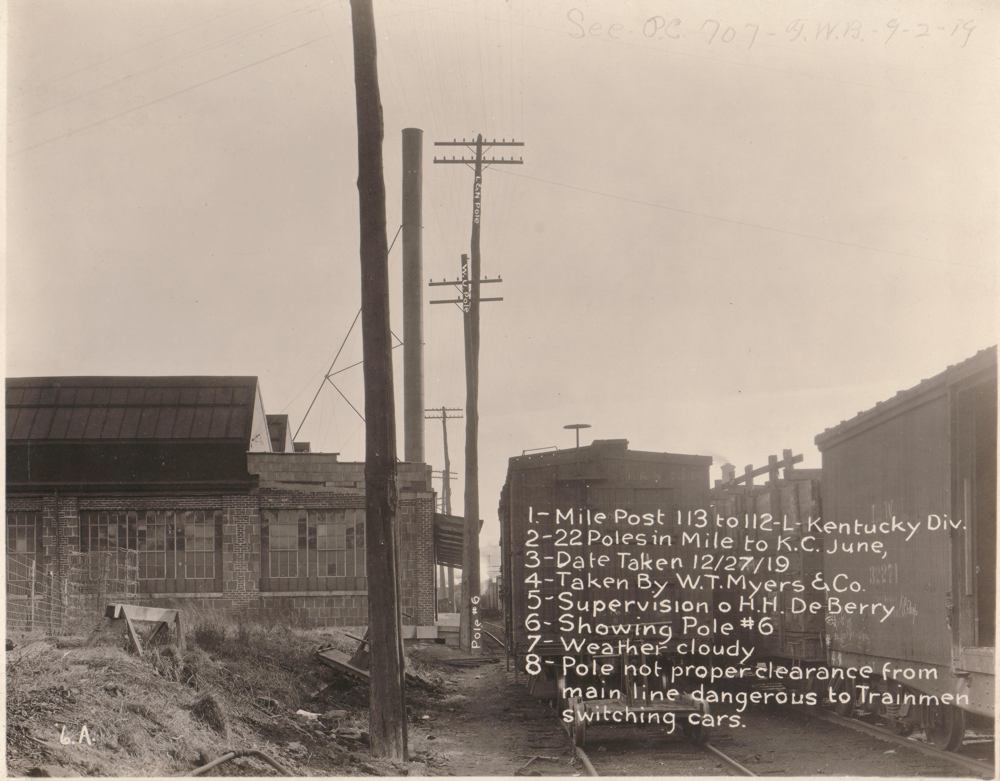 See P.C. 707 - G.W.B. - 9-2-19
L & N Pole
W.U. Pole
Pole #6
1.- Mile Post 113 to 112-L- Kentucky Div.
2-22 Poles in Mile to K.C. June,
3-Date Taken 12/27/19
4-Taken By W.T. Myers & Co.
5-Supervision o H.H. De Berry
6- Showing Pole #6
7- Weather cloudy
8- Pole not proper clearance from
main line dangerous to Trainmen
switching cars.
6.A.